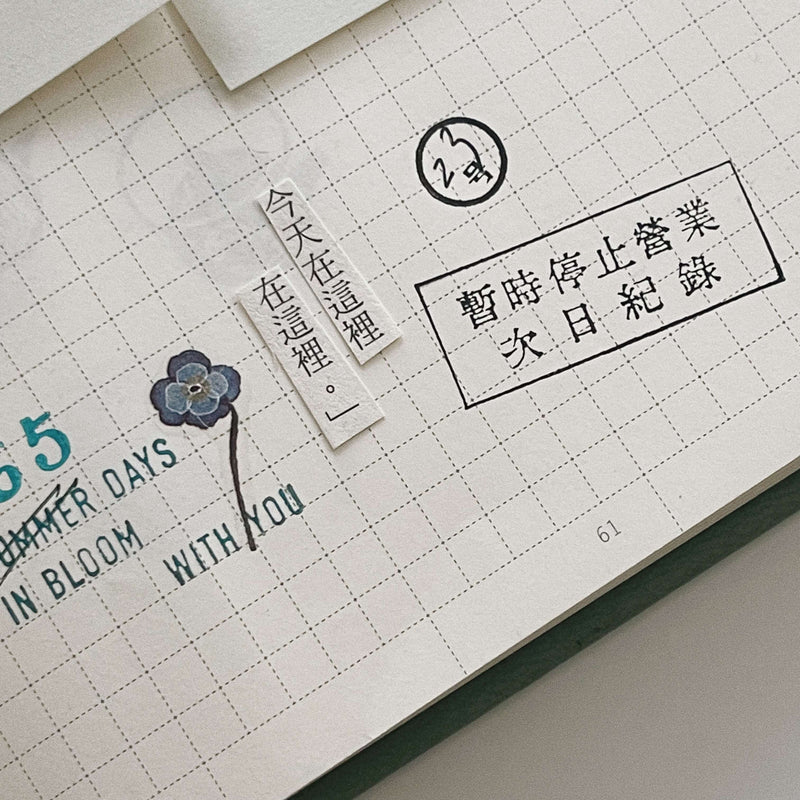 今天在這裡
在這裡。」
暫時停止營業
次日紀錄
5
SUMMER DAYS
IN BLOOM
WITH YOU
61